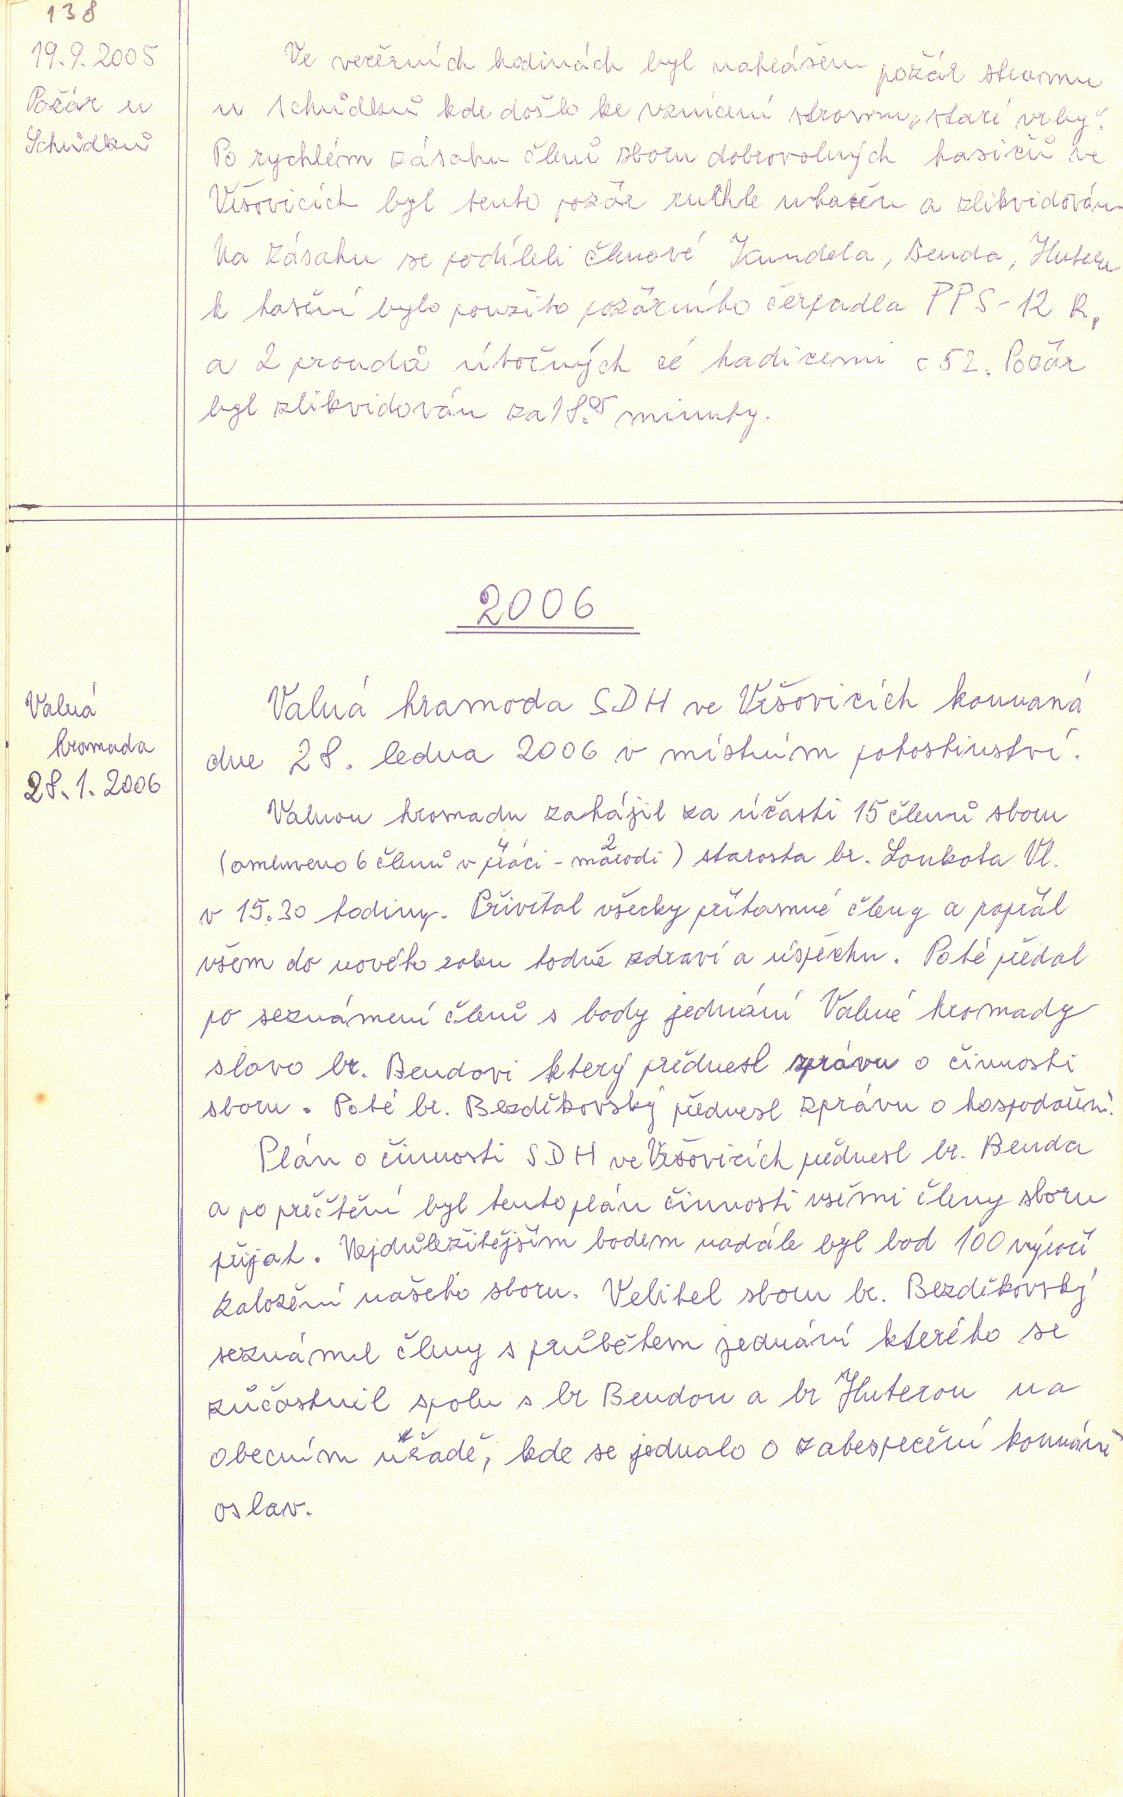 138
19.9.2005
Požár u
Schůdků
Ve večerních hodinách byl nahlášen požár stromu
u Schůdků kde došlo ke vznícení stromu „staré vrby“.
Po rychlém zásahu členů sboru dobrovolných hasičů ve
Vršovicích byl tento požár rychle uhašen a zlikvidován
Na zásahu se podíleli členové Kundela, Benda, Hutera
k hašení bylo použito požárního čerpadla PPS-12 R,
a 2 proudů útočných cé hadicemi c 52. Požár
byl zlikvidován za 18.05 minuty.
2006
Valná
hromada
28.1.2006
Valná hramoda SDH ve Vršovicích konaná
dne 28. ledna 2006 v místním pohostinství.
Valnou hromadu zahájil za účasti 15 členů sboru
(omluveno 6 členů v 4 práci - 2 márodi) starosta br. Loukota Vl.
v 15.30 hodiny. Přivítal všecky přítomné členy a popřál
všem do nového roku hodně zdraví a úspěchu. Poté předal
po seznámení členů s body jednání Valné hromady
slovo br. Bendovi který přednesl zprávu o činnosti
sboru. Poté br. Bezděkovský přednesl zprávu o hospodaření.
Plán o činnosti SDH ve Vršovicích přednesl br. Benda
a po přečtění byl tento plán činnosti všemi členy sboru
přijat. Nejdůležitějším bodem nadále byl bod 100 výročí
založení našeho sboru. Velitel sboru br. Bezděkovský
seznámil členy s průběhem jednání kterého se
zůčastnil spolu s br Bendou a br Huterou na
obecním úřadě, kde se jednalo o zabespečení konání
oslav.